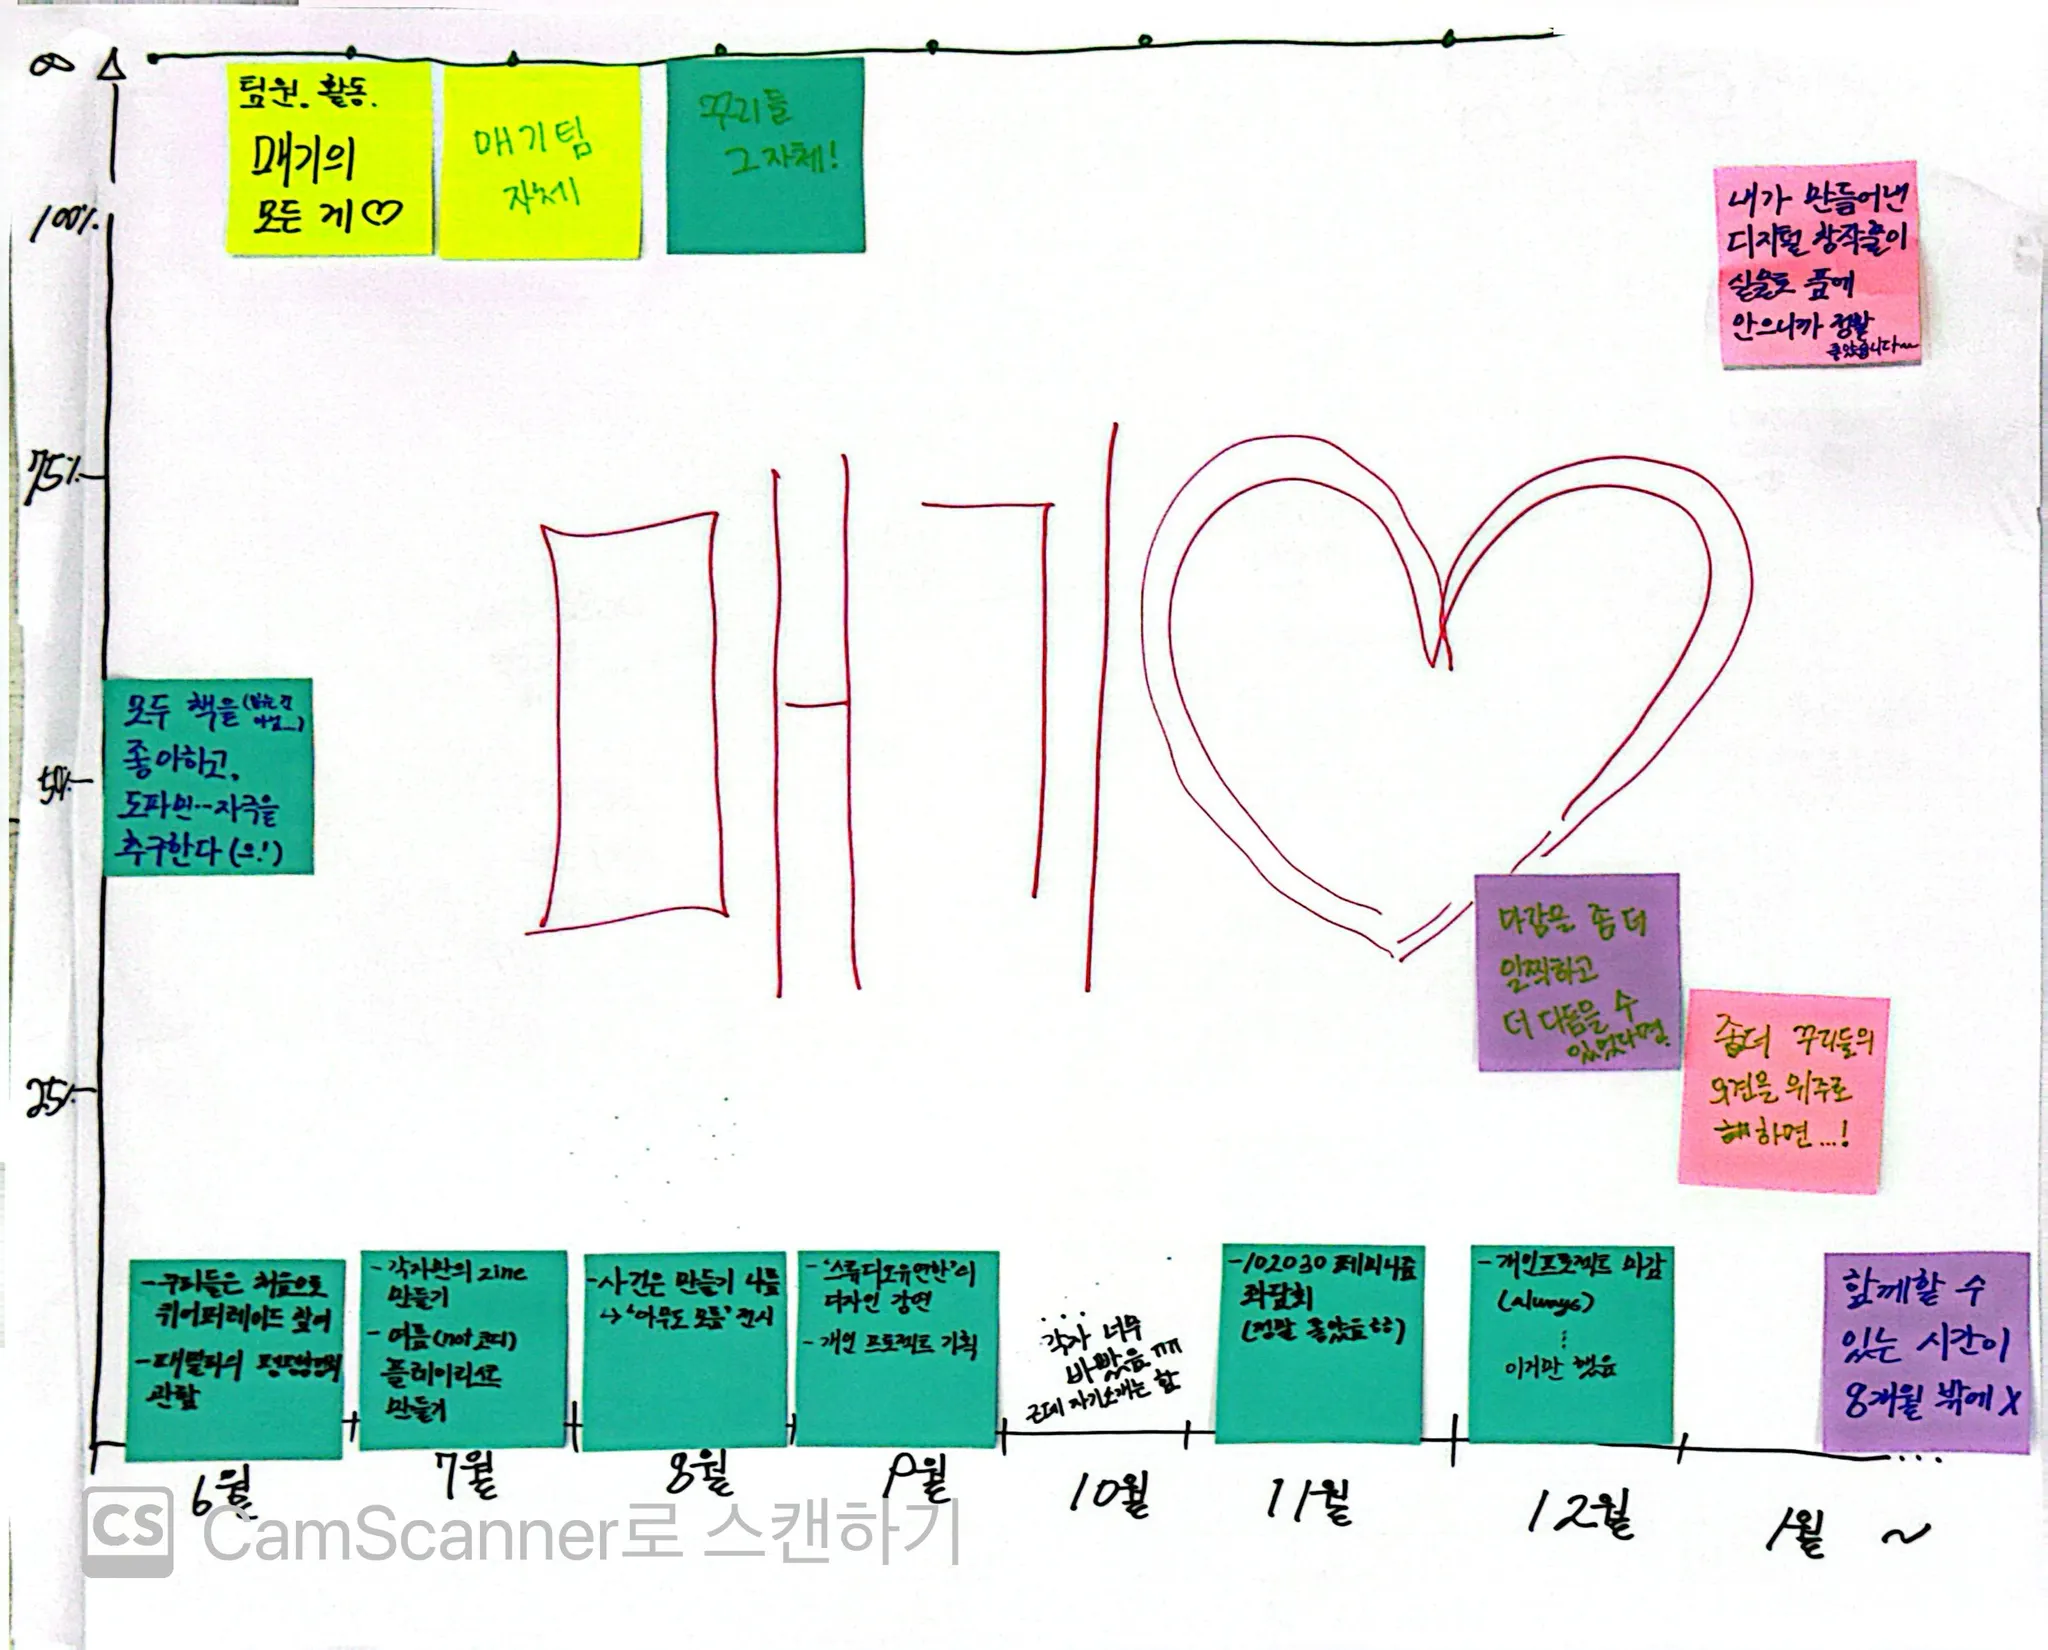 ∞
팀원. 활동.
매기의
모든 게♡
매기팀
자체
꾸리들
그 자체!
100%
내가 만들어낸
디지털 창작물이
실물로 품에
안으니까 정말
좋았습니다~
75%
매기♡
모두 책을
좋아하고,
도파민…자극을
추구한다 (으!)
50%
마감을 좀 더
일찍하고
더 다듬을 수
있었다면.
좀더 꾸리들의
의견을 위주로
하면...!
25%
- 꾸리들은 처음으로
퀴어퍼레이드 참여
관람
- 각자만의 zine
만들기
- 여름(not 코디)
플레이리스트
만들기
- 사건은 만들기 나름
→ '아무도 모름' 전시
- '스튜디오유연한'이
디자인 강연
- 개인 프로젝트 기획
각자 너무
바빴음 ㅠㅠ
근데 자기소개는 함
- 102030 페미니즘
좌담회
(정말 좋았음 ㅎㅎ)
- 개인프로젝트 마감
(always)
⋮
이거만 했음
함께할 수
있는 시간이
8개월 밖에 X
...
6월
7월
8월
9월
10월
11월
12월
1월 ~
CS CamScanner로 스캔하기